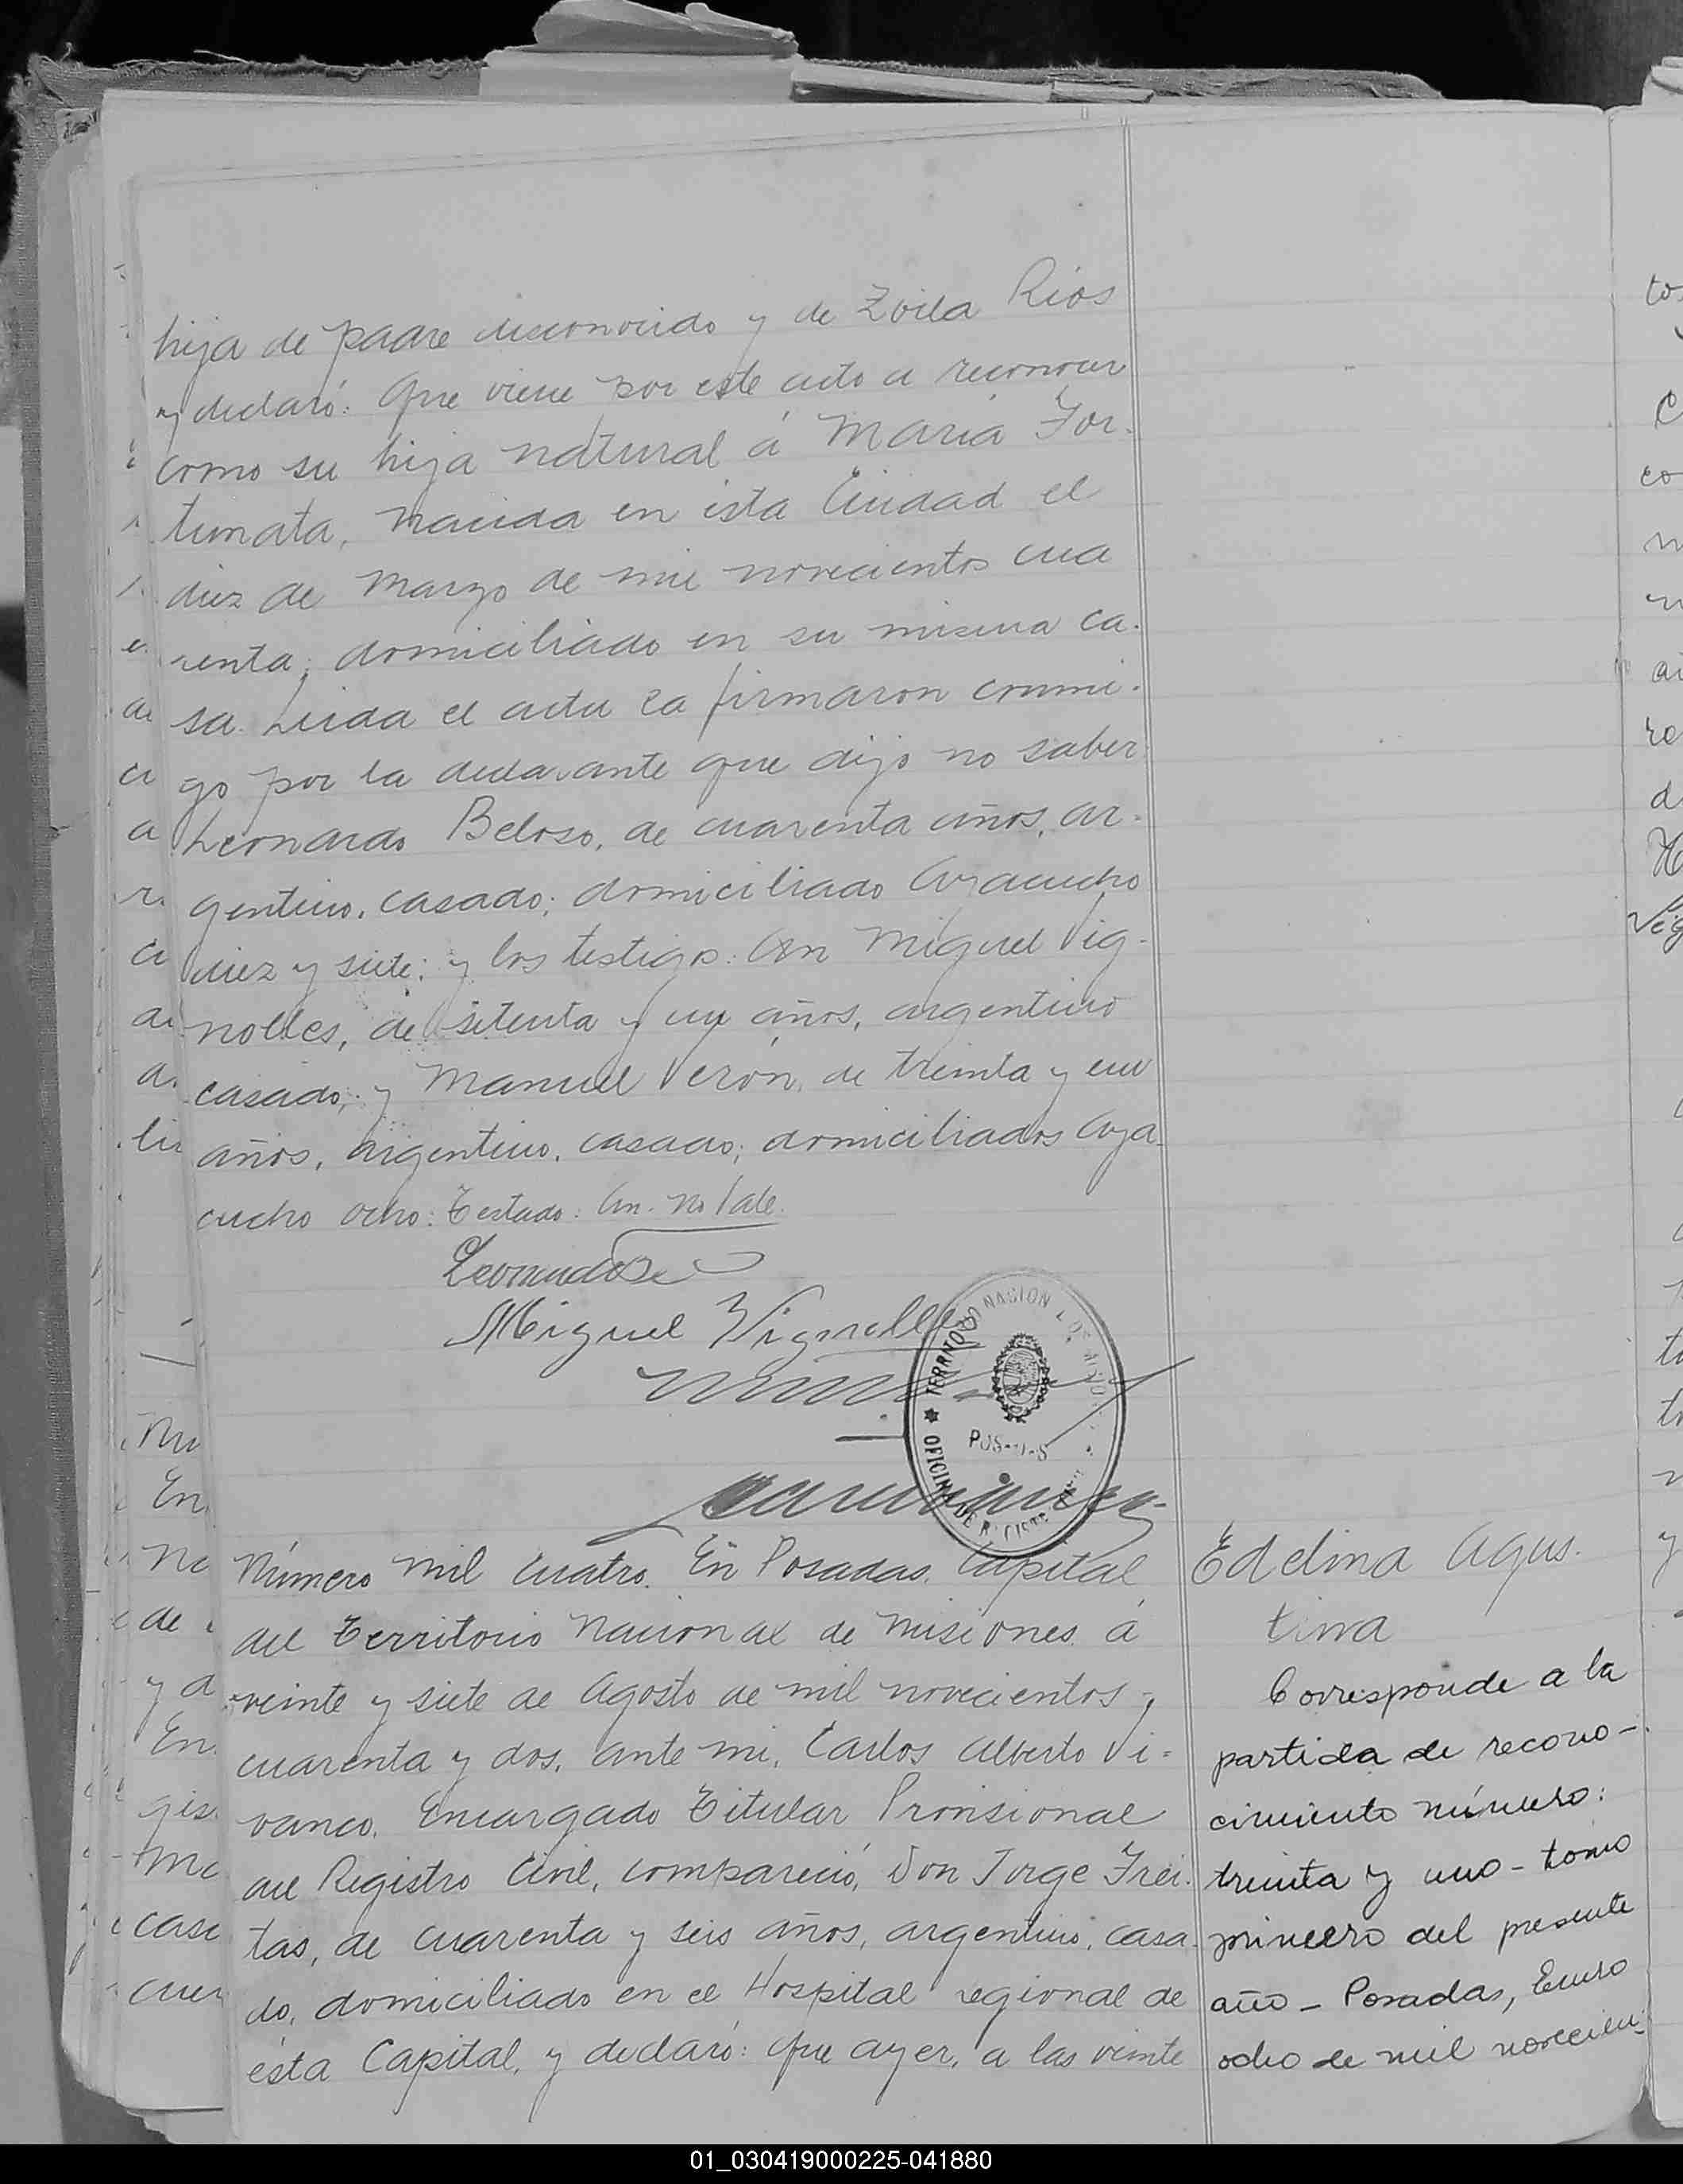 hija de padre desconocido y de Zoila Rios
y declaró: Que viene por este acto a reconocer
como su hija natural á Maria For-
tunata, nacida en esta Ciudad el
diez de Marzo de mil novecientos cua
renta, domiciliado en su misma ca-
sa. Leida el acta la firmaron conmi-
go por la declarante que dijo no saber
Leonardo Beloso, de cuarenta años, ar-
gentino, casado; domiciliado Ayacucho
diez y siete; y los testigos: An Miguel Vig-
nolles, de setenta y un años, argentino
casado; y Manuel Verón, de treinta y un
años, argentino, casado; domiciliados Aya
cucho ocho: Testado: An. No Vale.
Miguel Vignolles
OFICINA DE REGISTRO
Número mil cuatro. En Posadas, Capital
del Territorio Nacional de Misiones á
veinte y siete de Agosto de mil novecientos
cuarenta y dos, ante mi, Carlos Alberto Vi-
vanco, Encargado Titular Provisional
del Registro Civil, compareció, Don Jorge Frei-
tas, de cuarenta y seis años, argentino, casa-
do, domiciliado en el Hospital regional de
ésta Capital, y declaró: Que ayer, a las veinte
Edelina Agus-
tina
Corresponde a la
partida de recono-
cimiento número:
treinta y uno - tomo
primero del presente
año - Posadas, Enero
ocho de mil novecien-
01_030419000225-041880